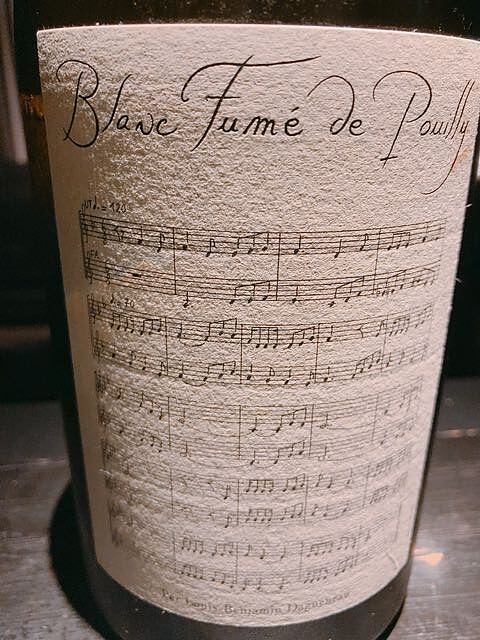 Blanc Fumé de Pouilly
Par Louis-Benjamin Dagueneau